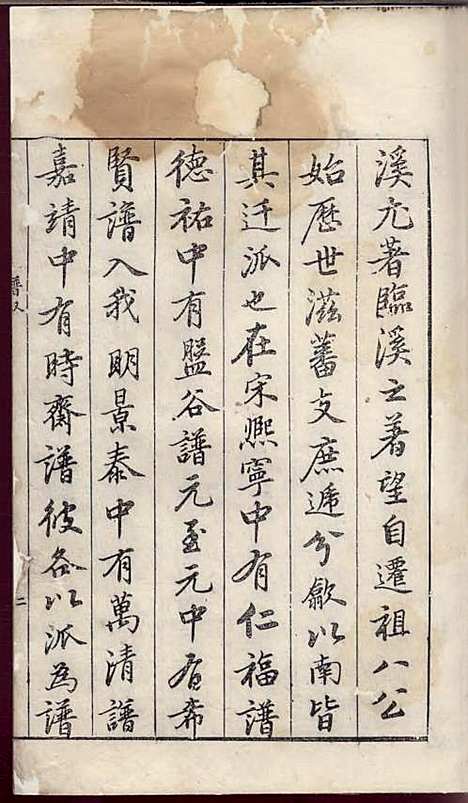 溪尤著臨溪之著望自遷祖八公
始歷世滋蕃支庶遞分歙以南皆
其迁派也在宋熈寧中有仁福譜
德祐中有盤谷譜元至元中有希
賢譜入我明景泰中有萬清譜
嘉靖中有時齋譜彼各以派為譜
譜
二